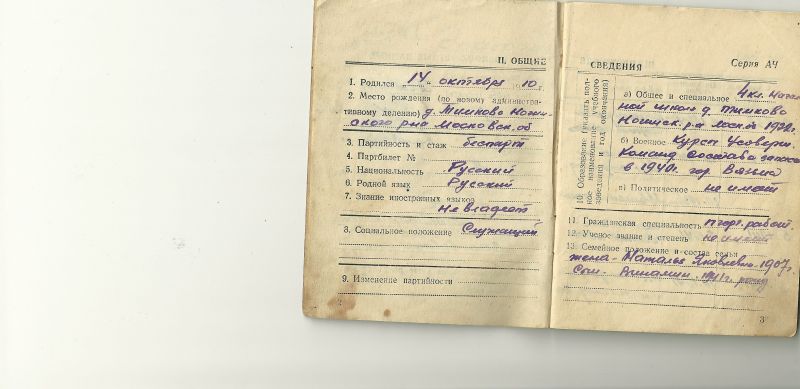 II. ОБЩИЕ
1. Родился 14 октября 1910 г.
2. Место рождения (по новому административному делению) д. Тимково Ногинского р-на Московск. об
3. Партийность и стаж беспарт
4. Партбилет №
5. Национальность Русский
6. Родной язык Русский
7. Знание иностранных языков
Не владеет
8. Социальное положение Служащий
9. Изменение партийности
2
СВЕДЕНИЯ
Серия АЧ
10. Образование: (указать полное наименование учебного заведения и год окончания)
а) Общее и специальное 4 кл. Начальной школ д. Тимково
Ногинск. р-на Моск. об 1922 г.
б) Военное Курсы Усоверш.
Команд состава запаса
в 1940 г. гор.
в) Политическое не имеет
11. Гражданская специальность торг. работ.
12. Ученое звание и степень не имеет
13. Семейное положение и состав семьи
жена - Наталья Яковлевна 1907 г.
Сын -
3